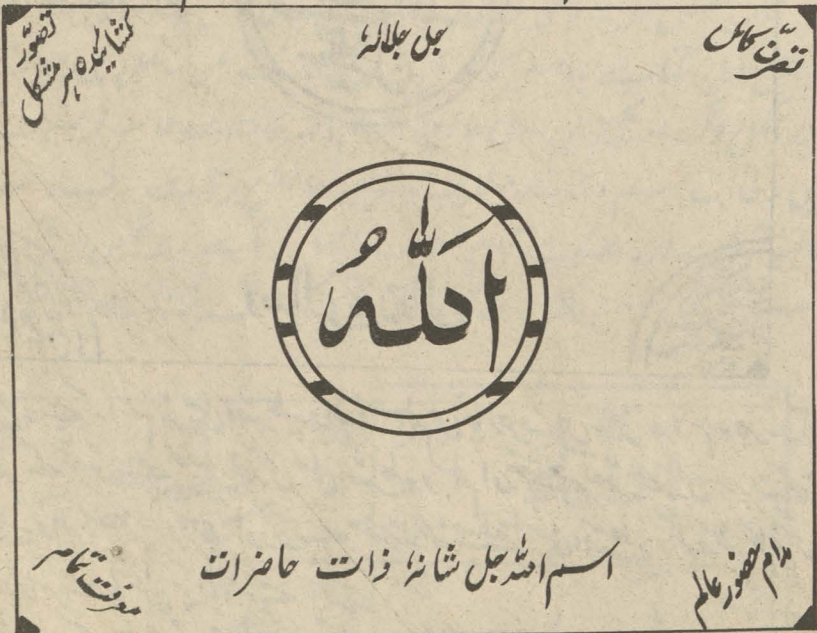 تصرف کامل
جل جلالہٗ
تصوّر
کشایندہ ہر مشکل
اللّٰہُ
مدام حضور عالم
اسم اللہ جل شانہٗ ذات حاضرات
معرفت تمام